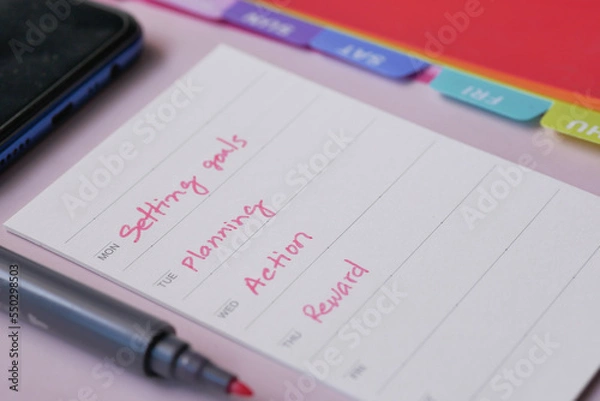 SUN
SAT
FRI
THU
MON Setting goals
TUE Planning
WED Action
THU Reward
FRI
Adobe Stock
550298503